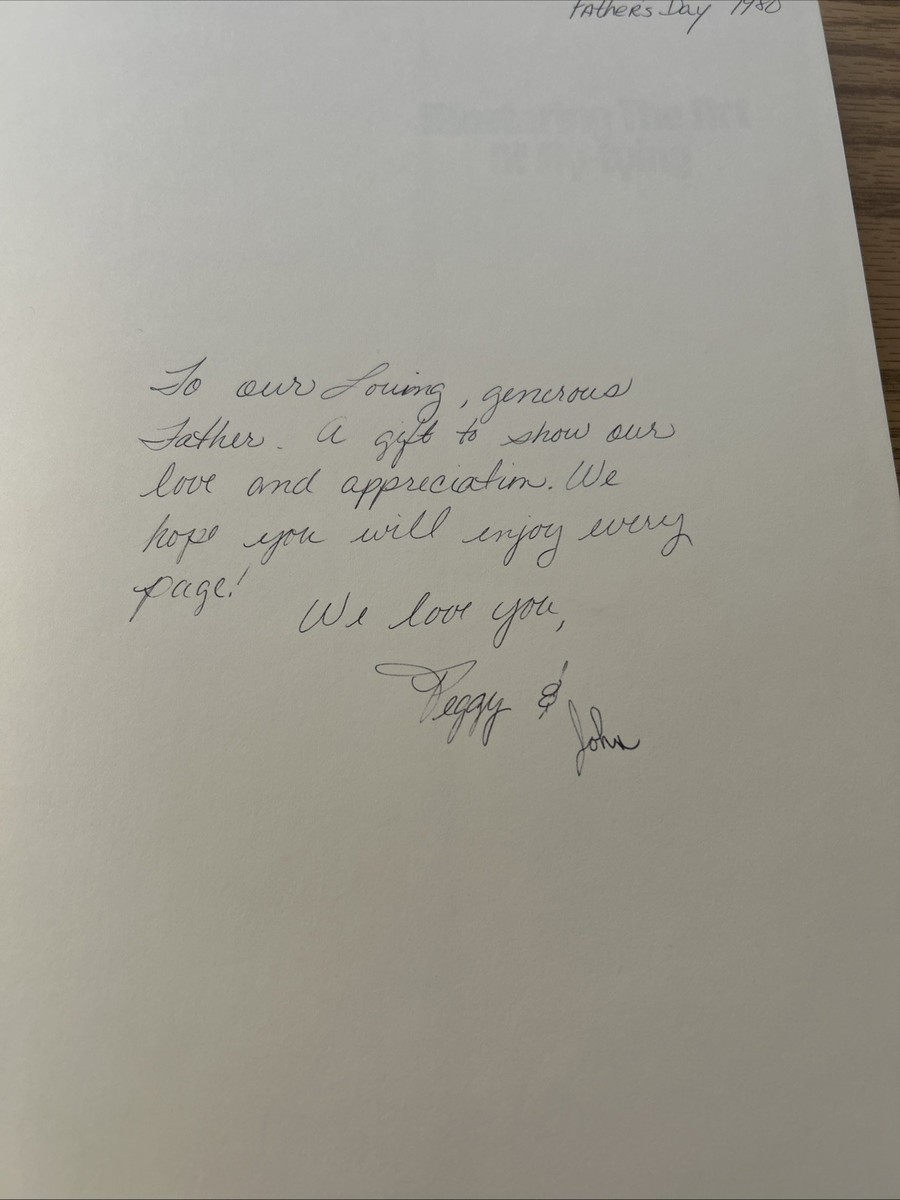 Fathers Day 1980
Mastering The Art
of Fly-tying
To our Loving, generous
Father. A gift to show our
love and appreciation. We
hope you will enjoy every
page!
We love you,
Peggy &
John